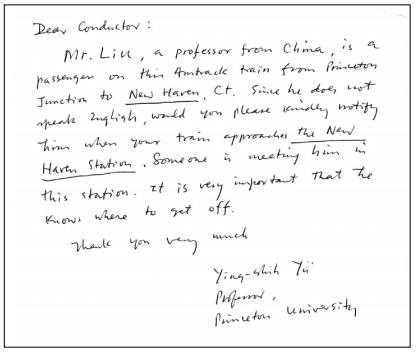 Dear Conductor:
Mr. Liu, a professor from China, is a
passenger on this Amtrack train from Princeton
Junction to New Haven, Ct. Since he does not
speak English, would you please kindly notify
him when your train approaches the New
Haven Station. Someone is meeting him in
this station. It is very important that he
knows where to get off.
Thank you very much
Ying-shih Yü
Professor,
Princeton University